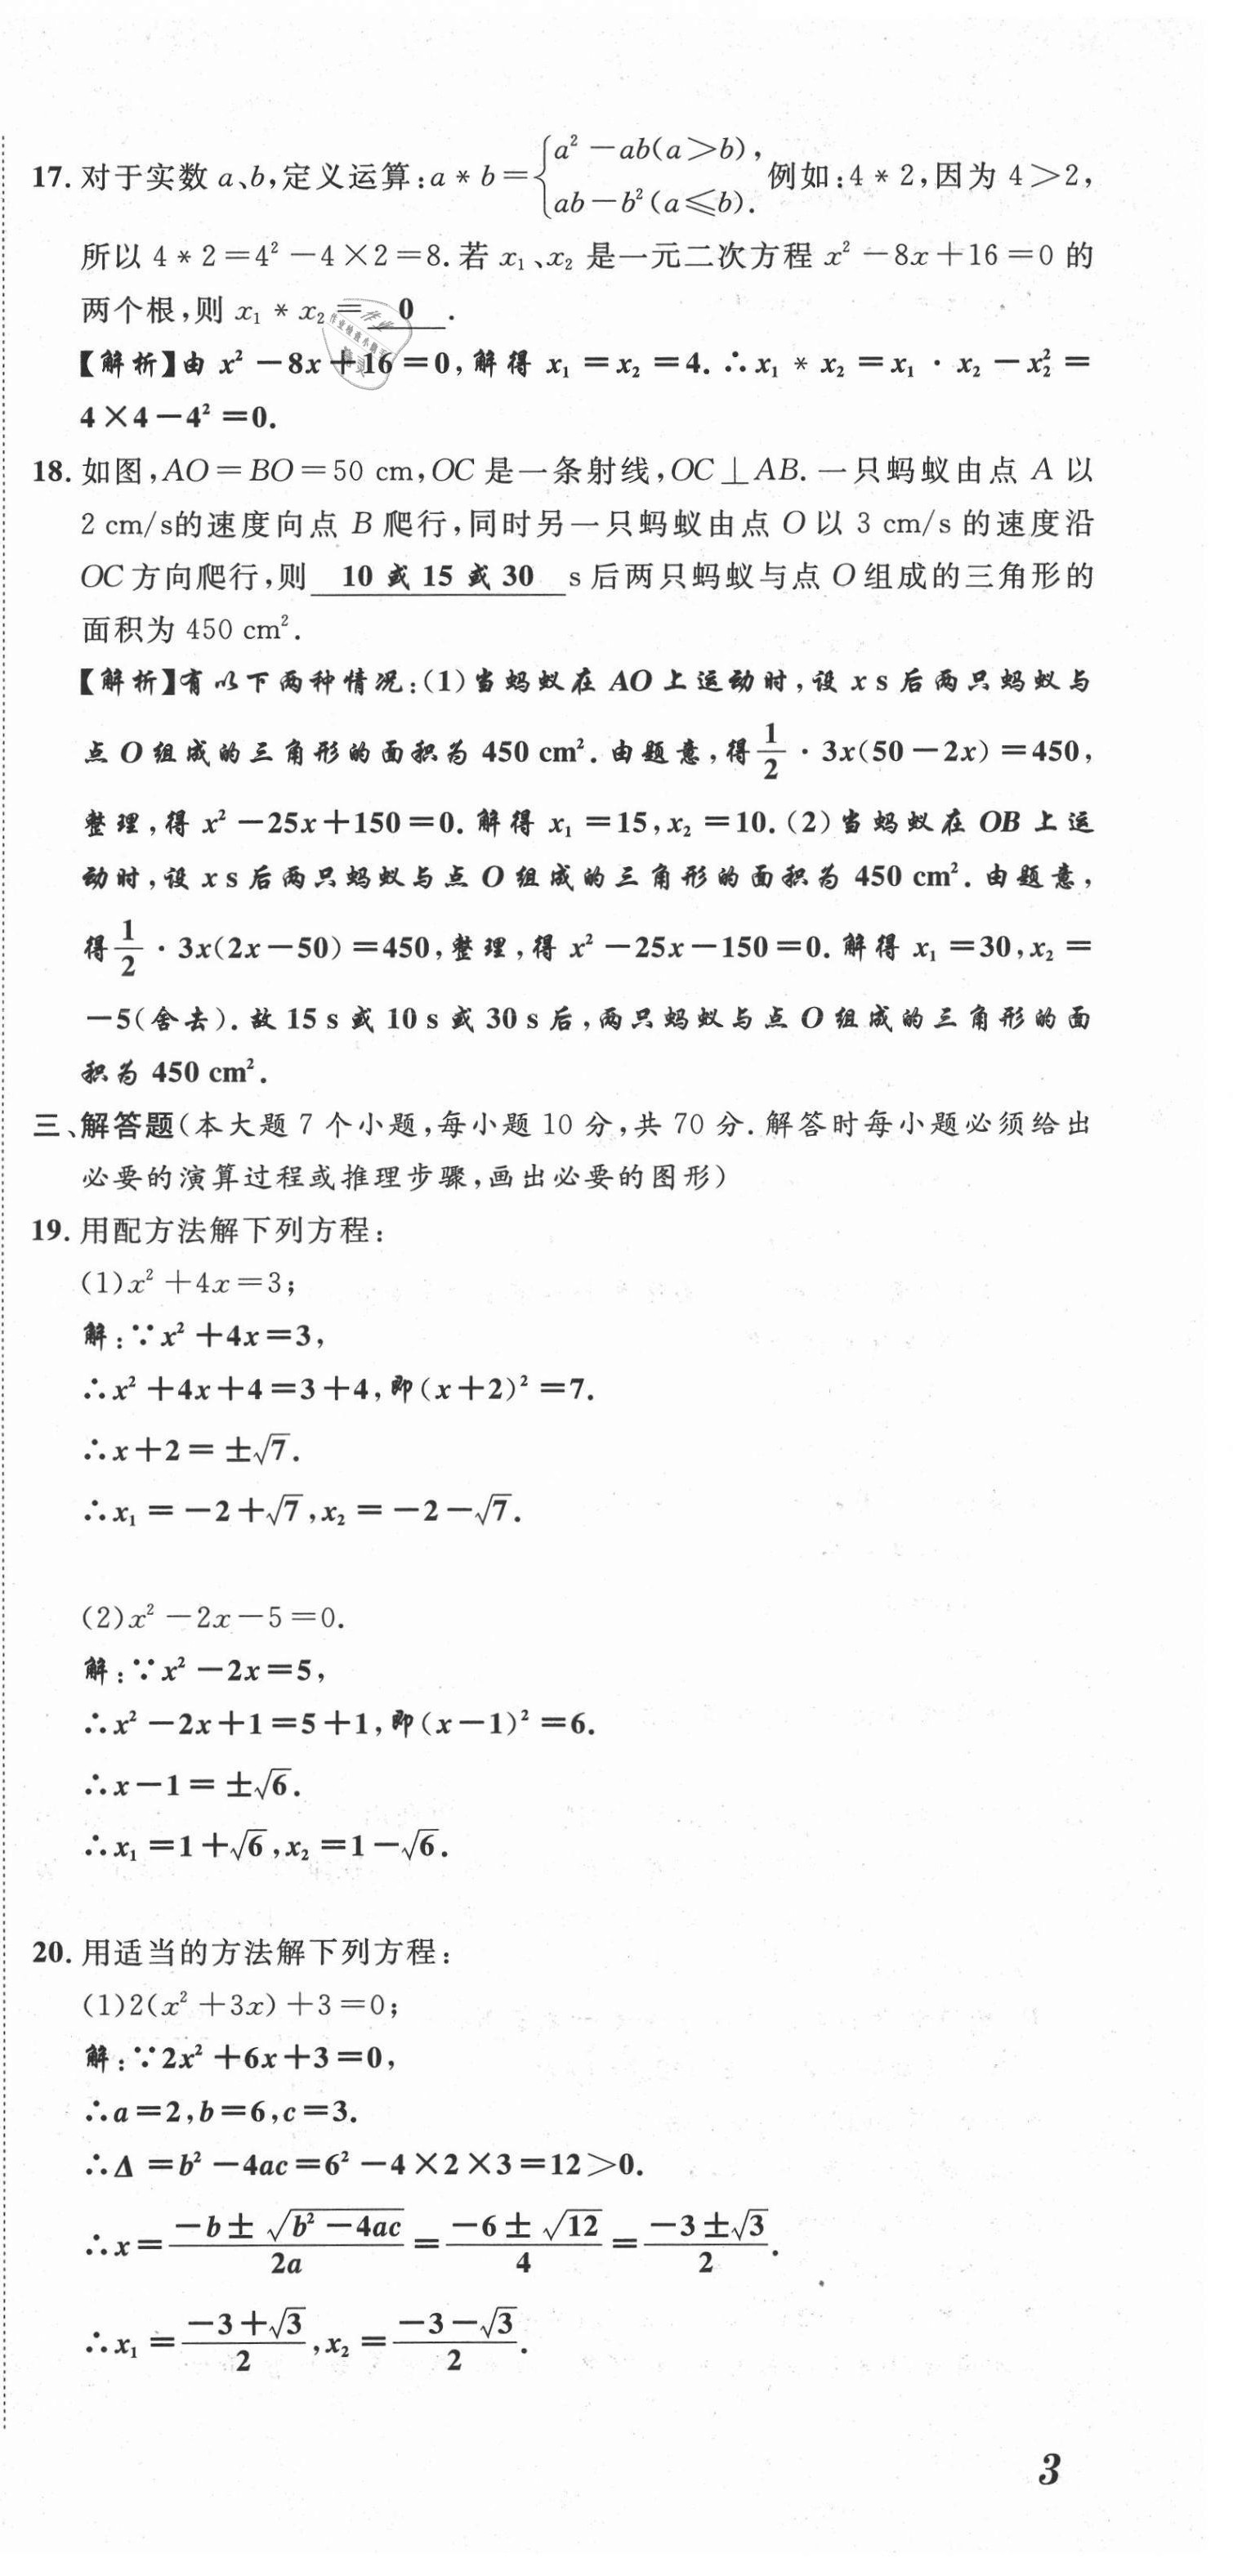 17. 对于实数 a、b,定义运算:a * b = { a² － ab(a＞b), ab－b²(a≤b). 例如:4 * 2,因为 4＞2,
所以 4 * 2＝4²－4×2＝8. 若 x₁、x₂ 是一元二次方程 x²－8x＋16＝0 的
两个根,则 x₁ * x₂＝ 0 .
【解析】由 x²－8x＋16＝0,解得 x₁＝x₂＝4. ∴x₁ * x₂＝x₁·x₂－x₂²＝
4×4－4²＝0.
18. 如图,AO＝BO＝50 cm,OC 是一条射线,OC⊥AB. 一只蚂蚁由点 A 以
2 cm/s的速度向点 B 爬行,同时另一只蚂蚁由点 O 以 3 cm/s 的速度沿
OC 方向爬行,则 10 或 15 或 30 s 后两只蚂蚁与点 O 组成的三角形的
面积为 450 cm².
【解析】有以下两种情况:(1)当蚂蚁在 AO 上运动时,设 x s 后两只蚂蚁与
点 O 组成的三角形的面积为 450 cm². 由题意,得 1/2 · 3x(50－2x)＝450,
整理,得 x²－25x＋150＝0. 解得 x₁＝15,x₂＝10. (2)当蚂蚁在 OB 上运
动时,设 x s 后两只蚂蚁与点 O 组成的三角形的面积为 450 cm². 由题意,
得 1/2 · 3x(2x－50)＝450,整理,得 x²－25x－150＝0. 解得 x₁＝30,x₂＝
－5(舍去). 故 15 s 或 10 s 或 30 s 后,两只蚂蚁与点 O 组成的三角形的面
积为 450 cm².
三、解答题(本大题 7 个小题,每小题 10 分,共 70 分. 解答时每小题必须给出
必要的演算过程或推理步骤,画出必要的图形)
19. 用配方法解下列方程:
(1)x²＋4x＝3;
解:∵x²＋4x＝3,
∴x²＋4x＋4＝3＋4,即(x＋2)²＝7.
∴x＋2＝±√7.
∴x₁＝－2＋√7,x₂＝－2－√7.
(2)x²－2x－5＝0.
解:∵x²－2x＝5,
∴x²－2x＋1＝5＋1,即(x－1)²＝6.
∴x－1＝±√6.
∴x₁＝1＋√6,x₂＝1－√6.
20. 用适当的方法解下列方程:
(1)2(x²＋3x)＋3＝0;
解:∵2x²＋6x＋3＝0,
∴a＝2,b＝6,c＝3.
∴Δ＝b²－4ac＝6²－4×2×3＝12＞0.
∴x＝(－b±√(b²－4ac))/2a＝(－6±√12)/4＝(－3±√3)/2.
∴x₁＝(－3＋√3)/2,x₂＝(－3－√3)/2.
3